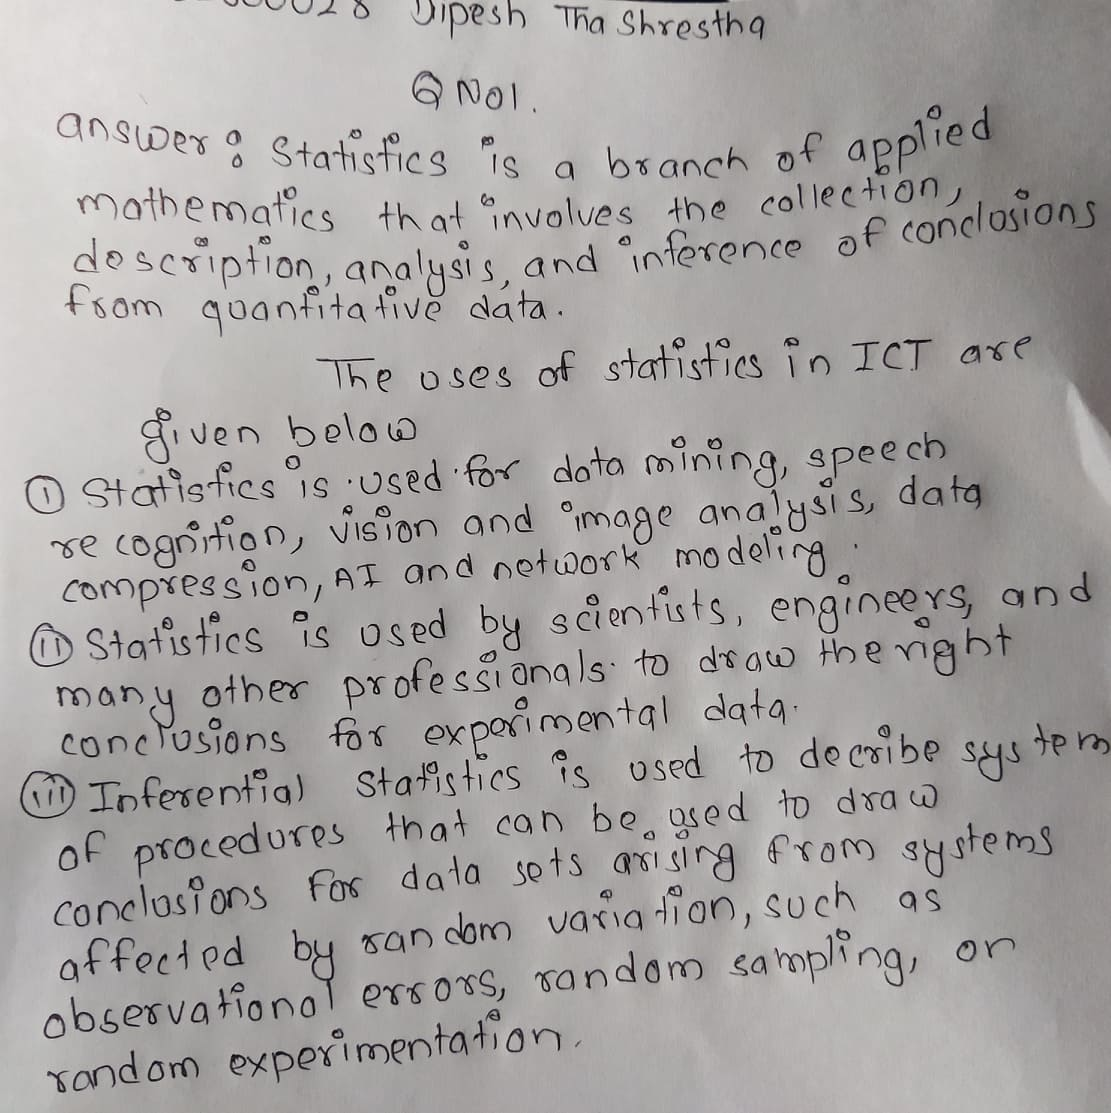 Dipesh Tha Shrestha
Q NO1.
answer : Statistics is a branch of applied
mathematics that involves the collection,
description, analysis, and inference of conclusions
from quantitative data.
The uses of statistics in ICT are
given below
(i) Statistics is used for data mining, speech
recognition, vision and image analysis, data
compression, AI and network modeling.
(ii) Statistics is used by scientists, engineers, and
many other professionals to draw the right
conclusions for experimental data.
(iii) Inferential statistics is used to decribe system
of procedures that can be used to draw
conclusions for data sets arising from systems
affected by random variation, such as
observational errors, random sampling, or
random experimentation.